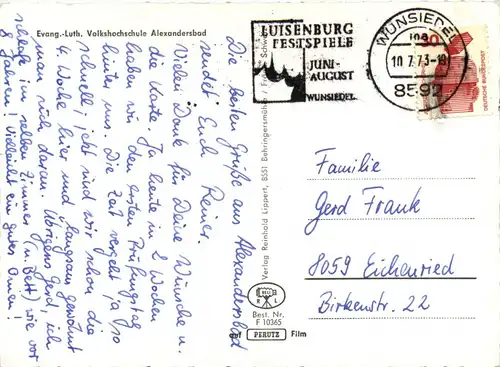 Evang.-Luth. Volkshochschule Alexandersbad
Die besten Grüße aus Alexandersbad
sendet Euch Reiner.
Vielen Dank für Deine Wünsche u.
die Karte. Ja heute in 2 Wochen
haben wir den ersten Prüfungstag
hinter uns. Die Zeit vergeht ja so
schnell, jetzt sind wir schon die
4. Woche hier und langsam gewöhnt
man sich daran. Übrigens Gerd, ich
schlafe im selben Zimmer (u. Bett) wie vor
8 Jahren! Vielleicht ein gutes Omen!
Verlag Reinhold Lippert, 8551 Behringersmühle / Fränk. Schweiz
RELI
R L
Best. Nr.
F 10365
auf PERUTZ Film
LUISENBURG
FESTSPIELE
JUNI-
AUGUST
WUNSIEDEL
WUNSIEDEL
10.7.73-18
8592
30
DEUTSCHE BUNDESPOST
Familie
Gerd Frank
8059 Eichenried
Birkenstr. 22